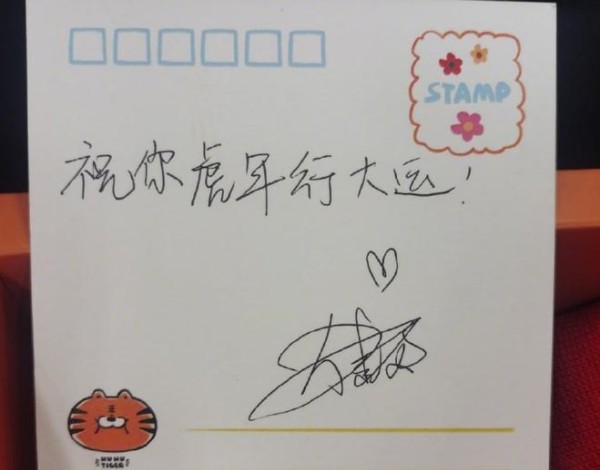 STAMP
祝你虎年行大运!
HUHU
TIGER